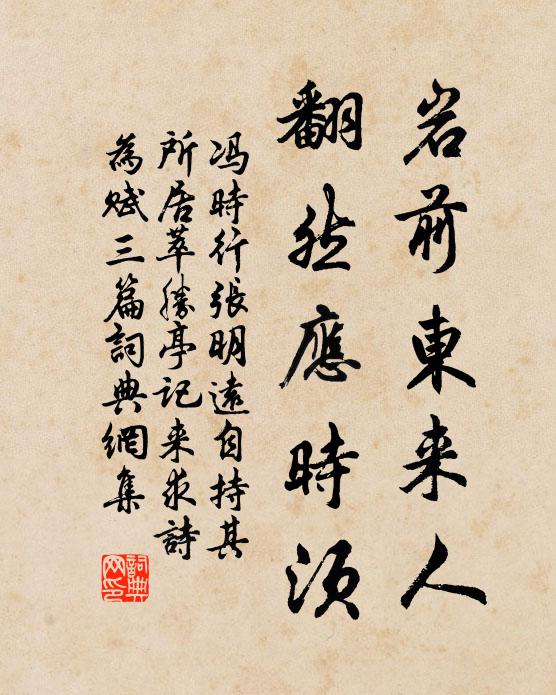 岩前東来人
翻然應時須
冯時行張明遠自持其
所居萃勝亭記来求詩
為赋三篇詞典網集
詞典
网印